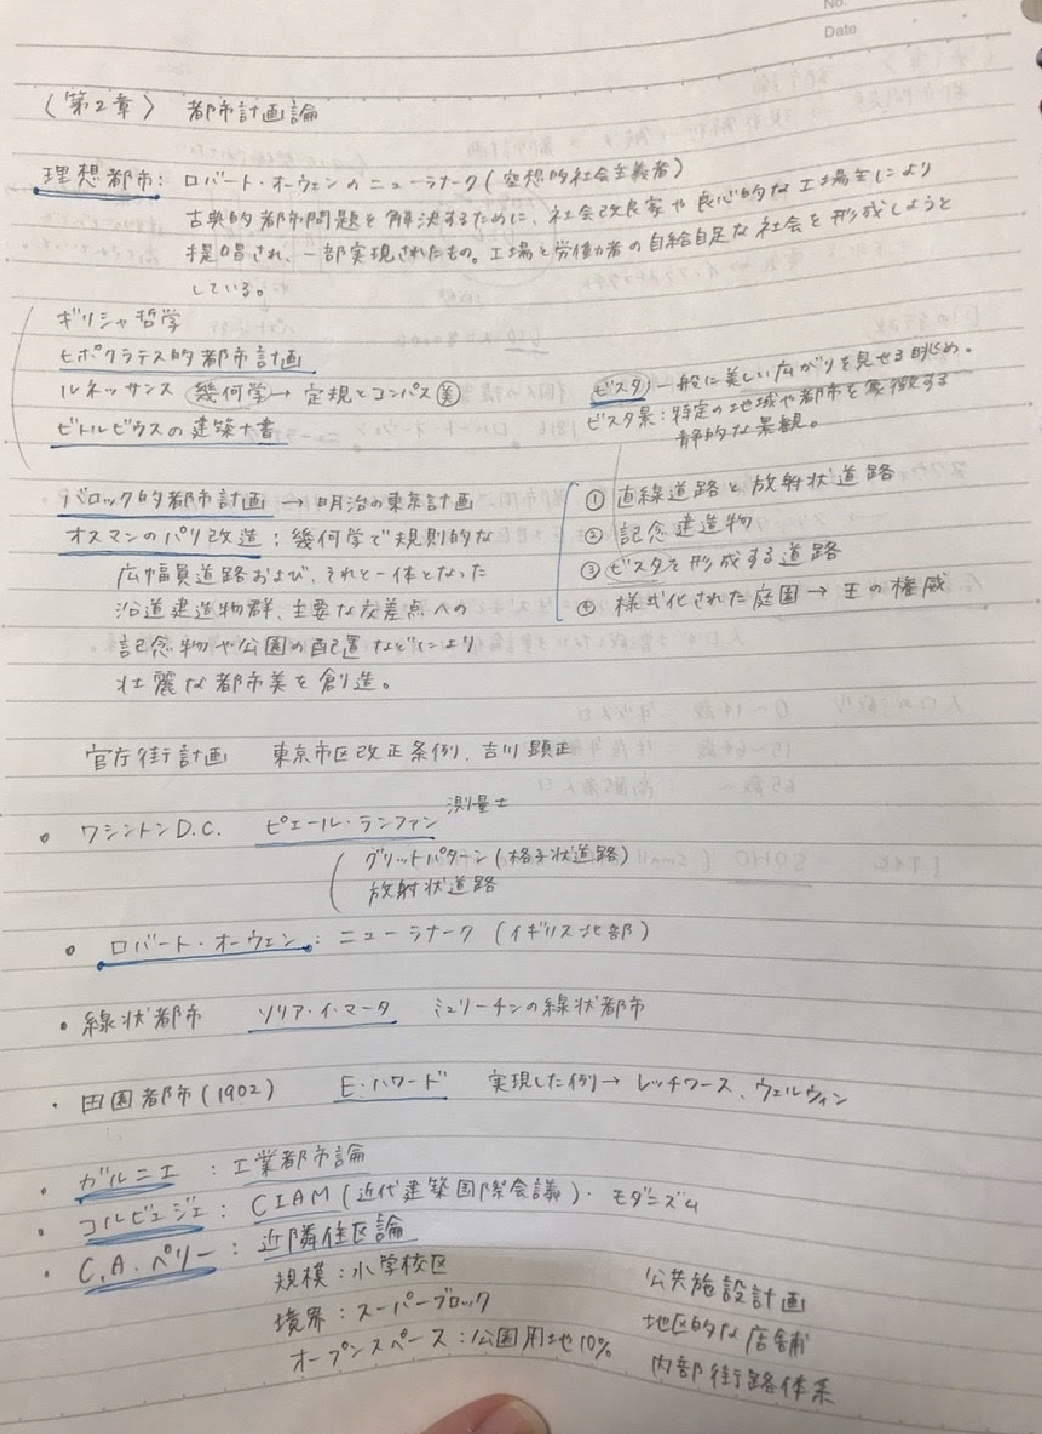 No.
Date
〈第2章〉 都市計画論
理想都市: ロバート・オーウェンのニューラナーク(空想的社会主義者)
古典的都市問題を解決するために、社会改良家や良心的な工場主により
提唱され、一部実現されたもの。工場と労働者の自給自足な社会を形成しようと
している。
ギリシャ哲学
ヒポクラテス的都市計画
ルネッサンス 幾何学→定規とコンパス 美
ビトルビウスの建築十書
ビスタ 一般に美しい広がりを見せる眺め。
ビスタ景:特定の地域や都市を象徴する
静的な景観。
バロック的都市計画 → 明治の東京計画
オスマンのパリ改造:幾何学で規則的な
広幅員道路および、それと一体となった
沿道建造物群、主要な交差点への
記念物や公園の配置などにより
壮麗な都市美を創造。
① 直線道路と放射状道路
② 記念建造物
③ ビスタを形成する道路
④ 様式化された庭園 → 王の権威
官庁街計画 東京市区改正条例、吉川顕正
• ワシントンD.C. ピエール・ランファン 測量士
グリットパターン(格子状道路)
放射状道路
• ロバート・オーウェン: ニューラナーク (イギリス北部)
• 線状都市 ソリア・イ・マータ ミリューチンの線状都市
• 田園都市(1902) E.ハワード 実現した例→ レッチワース、ウェルウィン
• ガルニエ : 工業都市論
• コルビュジェ : CIAM (近代建築国際会議)・モダニズム
• C.A.ペリー : 近隣住区論
規模:小学校区
境界:スーパーブロック
オープンスペース:公園用地10%
公共施設計画
地区的な店舗
内部街路体系